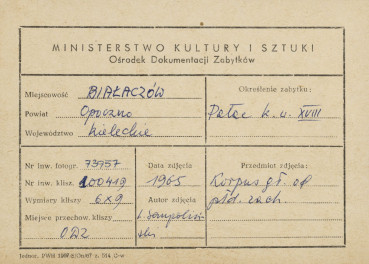 MINISTERSTWO KULTURY I SZTUKI
Ośrodek Dokumentacji Zabytków
Miejscowość BIAŁACZÓW
Powiat Opoczno
Województwo kieleckie
Określenie zabytku:
Pałac k. w XVIII
Nr inw. fotogr. 73957
Nr inw. klisz. 100419
Wymiary kliszy 6x9
Miejsce przechow. kliszy
ODZ
Data zdjęcia
1965
Autor zdjęcia
Przedmiot zdjęcia:
Korpus gł. od
płd. zach.